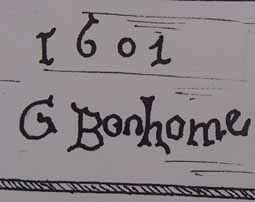 1601
G Bonhome